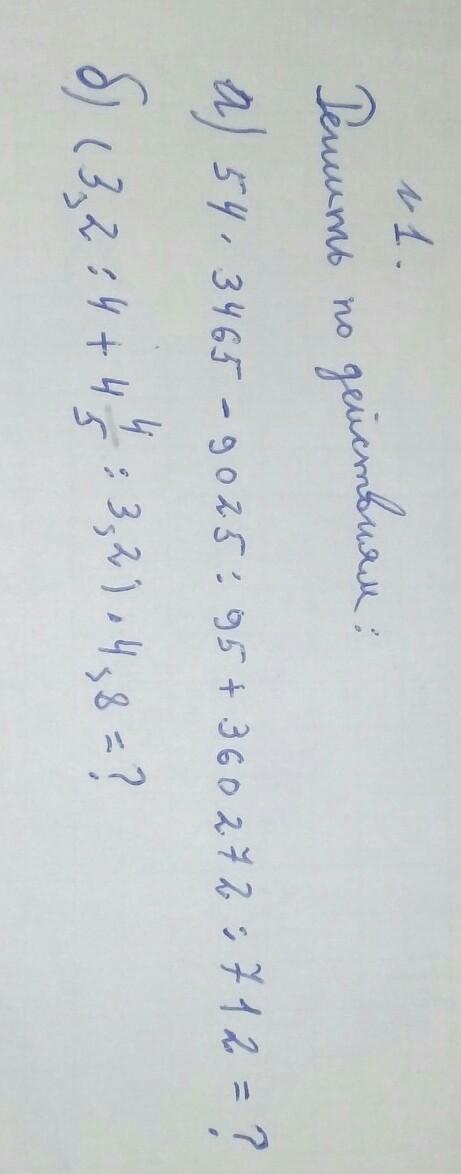 №1.
Решить по действиям:
а) 54 · 3465 - 9025 : 95 + 360272 : 712 = ?
б) (3,2 : 4 + 4 4/5 : 3,2) · 4,8 = ?